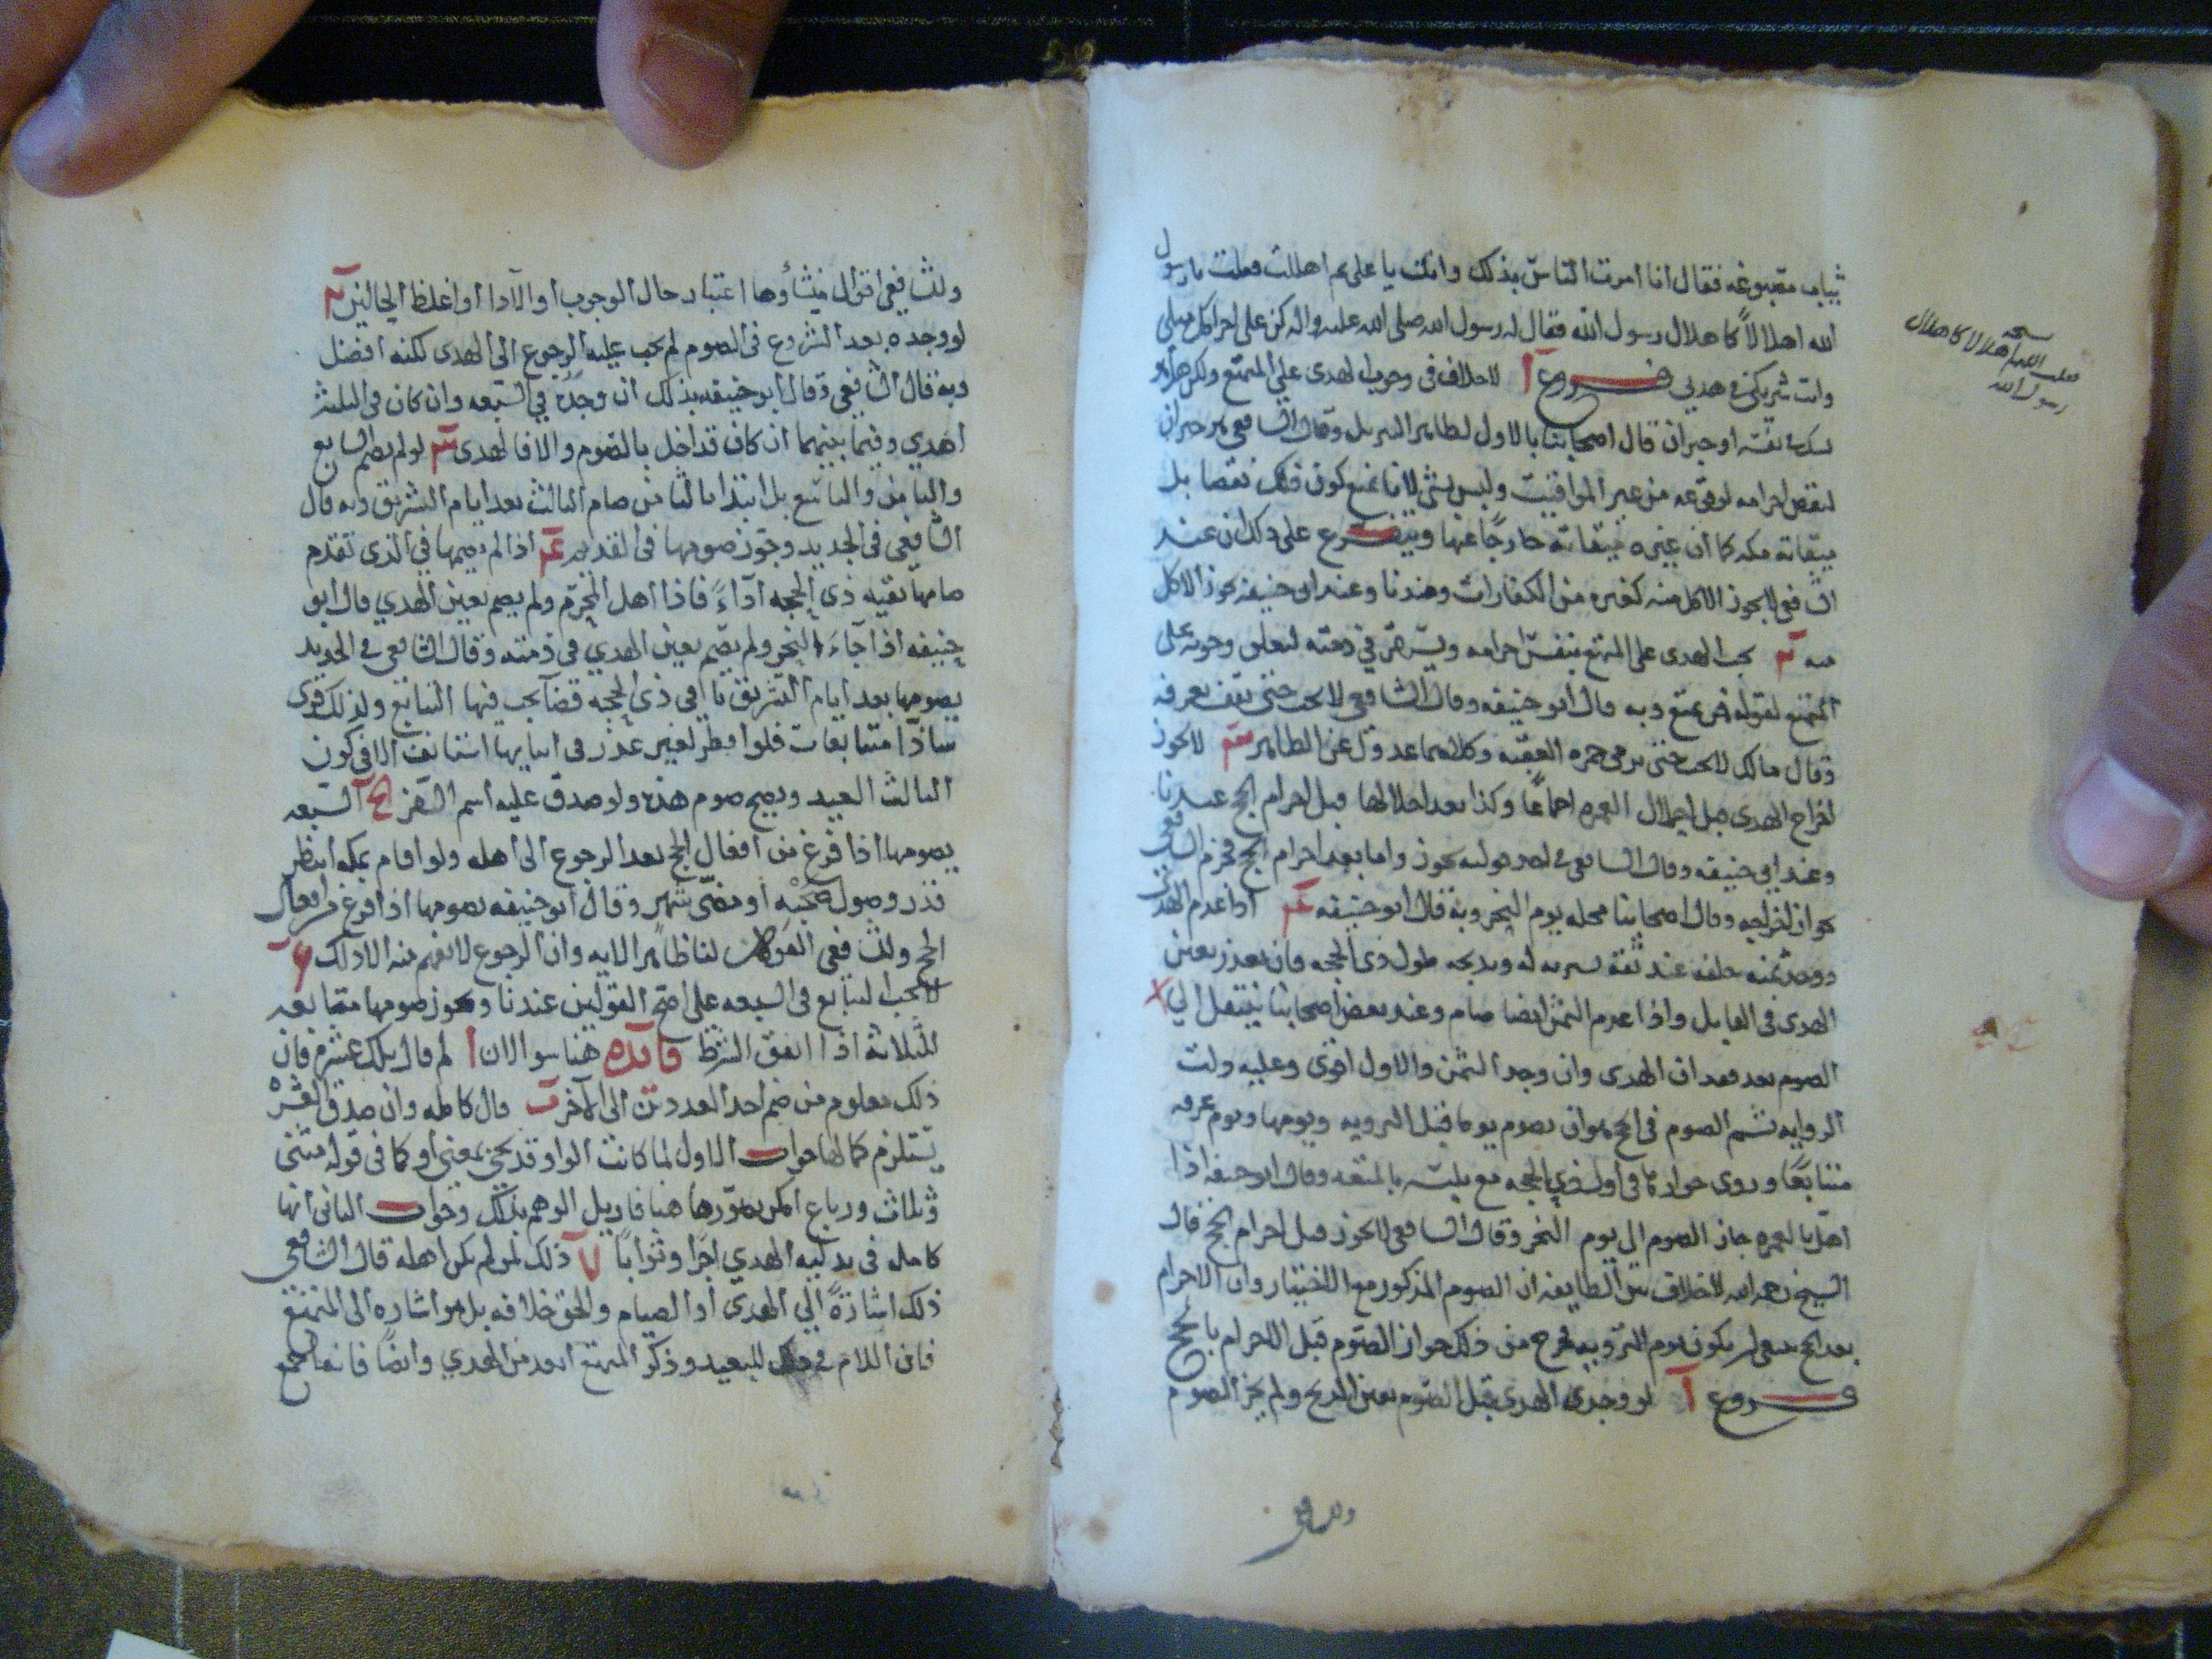 ثياب مصبوغه فقال انا امرت الناس بذلك وانت يا على بم اهللت فقلت يا رسول
الله اهلالا كاهلال رسول الله فقال له رسول الله صلى الله عليه واله كن على احرامك مثلى
وانت شريكى في هديي فروع آ لاخلاف فى وجوب الهدى على المتمتع ولكن هل هو
نسك او جبران قال اصحابنا بالاول لظاهر التنزيل وقال الشافعي هو جبران
لنقص احرامه لوقوعه من غير المواقيت وليس بشى لانا نمنع كون ذلك نقصا بل
ميقاته مكه كما ان غيره ميقاته خارجا عنها ويتفرع على ذلك ان عند
الشافعى لايجوز الاكل منه كغيره من الكفارات وعندنا وعند ابى حنيفه يجوز الاكل
منه ب يجب الهدى على المتمتع بنفس احرامه ويستقر في ذمته لتعلق وجوبه على
المتمتع لقوله فمن تمتع وبه قال ابو حنيفه وقال الشافعي لا يجب حتى يقف بعرفه
وقال مالك لا يجب حتى يرمى جمره العقبه وكلاهما عدول عن الظاهر ج لايجوز
اخراج الهدى قبل احلال العمره اجماعا وكذا بعد احلالها قبل احرام الحج عندنا
وعند ابى حنيفه وقال الشافعى في احد قوليه يجوز واما بعد احرام الحج فجزم الشافعى
بجواز اخراجه وقال اصحابنا محله يوم النحر وبه قال ابو حنيفه د اذا عدم الهدى
ووجد ثمنه خلفه عند ثقه يشريه له ويذبحه طول ذى الحجه فان تعذر تعين
الهدى فى القابل واذا عدم الثمن ايضا صام وعند بعض اصحابنا ينتقل الي
الصوم بعد فقدان الهدى وان وجد الثمن والاول اقوى وعليه دلت
الروايه ثم الصوم فى الحج هو ان يصوم يوما قبل الترويه ويومها ويوم عرفه
متتابعا وروى جوازها فى اول ذي الحجه مع تلبسه بالمتعه وقال ابو حنيفه اذا
اهل بالعمره جاز الصوم الى يوم النحر وقال الشافعي لايجوز قبل احرام الحج قال
الشيخ رحمه الله لاخلاف بين الطايفه ان الصوم المذكور مع الاختيار وان الاحرام
بعد الحج ينبغى ان يكون يوم الترويه فخرج من ذلك جواز الصوم قبل الاحرام بالحج
فروع آ لو وجد الهدى قبل الصوم تعين الذبح ولم يجز الصوم
نسخه
الله اهلالا كاهلال
رسول الله
وللشافعي
وللشافعي اقوال منشاؤها اعتبار حال الوجوب او الآدا او اغلظ الحالين ب
لو وجده بعد الشروع فى الصوم لم يجب عليه الرجوع الى الهدى لكنه افضل
وبه قال الشافعي وقال ابو حنيفه بذلك ان وجده في السبعه وان كان فى الثلثه
اهدي وفيما بينهما ان كان قد احل بالصوم والا فالهدى ج لو لم يصم السابع
والثامن والتاسع بل ابتدا بالثامن صام الثالث بعد ايام التشريق وبه قال
الشافعى فى الجديد وجوز صومها فى القديم د اذا لم يصمها في الذى تقدم
صامها بقيه ذى الحجه آداءً فاذا اهل المحرم ولم يصم تعين الهدي قال ابو
حنيفه اذا جاء النحر ولم يصم تعين الهدي فى ذمته وقال الشافعى فى الجديد
يصومها بعد ايام التشريق باقي ذى الحجه قضآ يجب فيها التتابع ولذلك قرى
شاذا متتابعات فلو افطر لغير عذر فى اثنايها استانف الا في كون
الثالث العيد ويصح صوم هذه ولو صدق عليه اسم السفر السبعه
يصومها اذا فرغ من افعال الحج بعد الرجوع الى اهله ولو اقام بمكه انتظر
قدر وصول صحبه او مضى شهر وقال ابو حنيفه يصومها اذا فرغ من افعال
الحج وللشافعى القولان لنا ظاهر الايه وان الرجوع لا يفهم منه الا ذلك و
لايجب التتابع فى السبعه على اصح القولين عندنا ويجوز صومها متتابعه
للثلاثه اذا اتفق الشرط فائده هنا سوالان ا لم قال تلك عشره فان
ذلك معلوم من ضم احد العددين الى الآخر ب قال كامله وان صدق العشره
يستلزم كمالها جواب الاول لما كانت الواو قد يجى بمعنى او كما فى قوله مثنى
وثلاث ورباع امكن تصورها هنا فازيل الوهم بذلك وجواب الثانى انها
كامله فى بدليه الهدي اجرا وثوابا ذلك لمن لم يكن اهله قال الشافعى
ذلك اشارةً الي الهدى او الصيام والحق خلافه بل هو اشاره الى المتمتع
فان اللام في ذلك للبعيد وذكر المتمتع ابعد من الهدي وايضا فانها